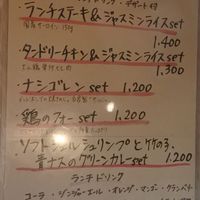 デザート付
・ランチステーキ&ジャスミンライスset
1.400
・タンドリーチキン&ジャスミンライスset
1.300
・ナシゴレン set 1,200
・鶏のフォー set 1.200
・ソフトシェルシュリンプと竹の子、
青ナスのグリーンカレーset 1.200
ランチドリンク
コーラ・ジンジャーエール・オレンジ・マンゴー・グランベリー